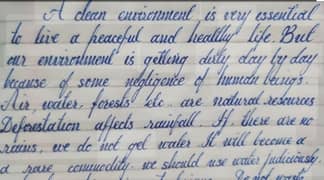 A clean environment is very essential
to live a peaceful and healthy life. But
our environment is getting dirty day by day
because of some negligence of human beings.
Air, water, forests etc. are natural resources
Deforestation affects rainfall. If there are no
rains, we do not get water It will become a
a rare commodity. we should use water judiciously
Do not waste